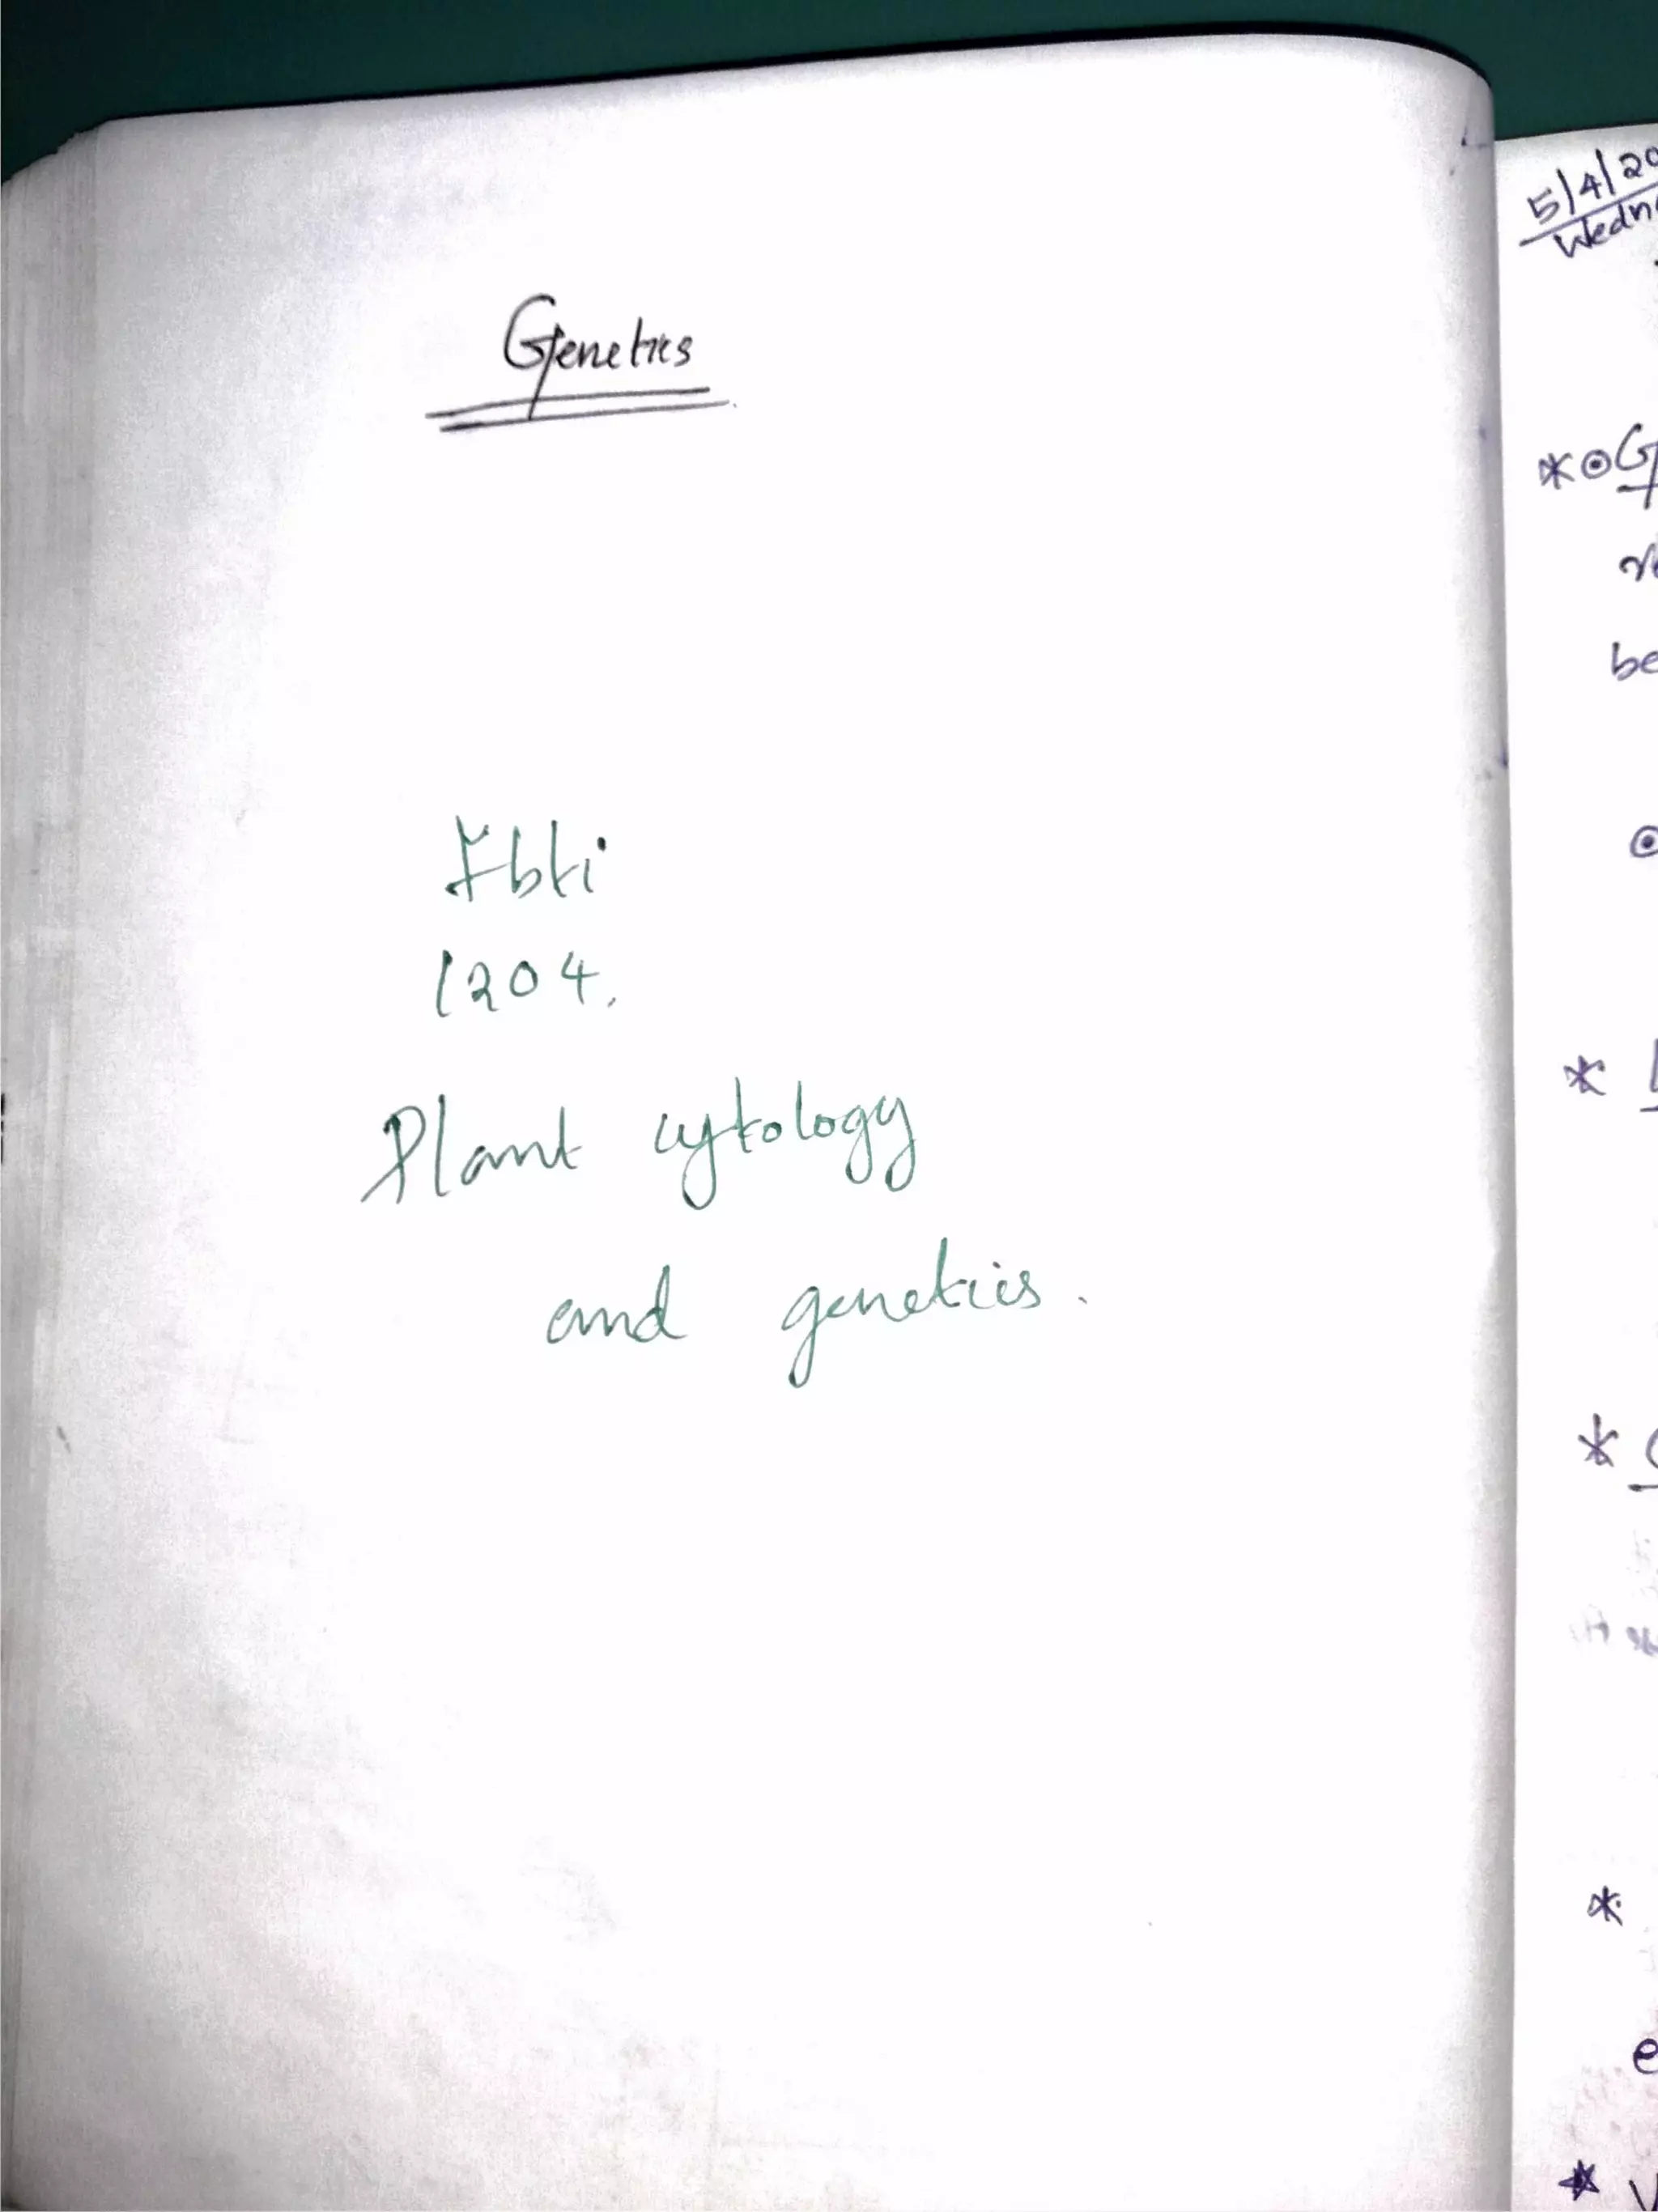 Genetics
Ibti
1204.
Plant cytology
and genetics.
5/4/20
Wedn
* G
be
*
*
*
e
*